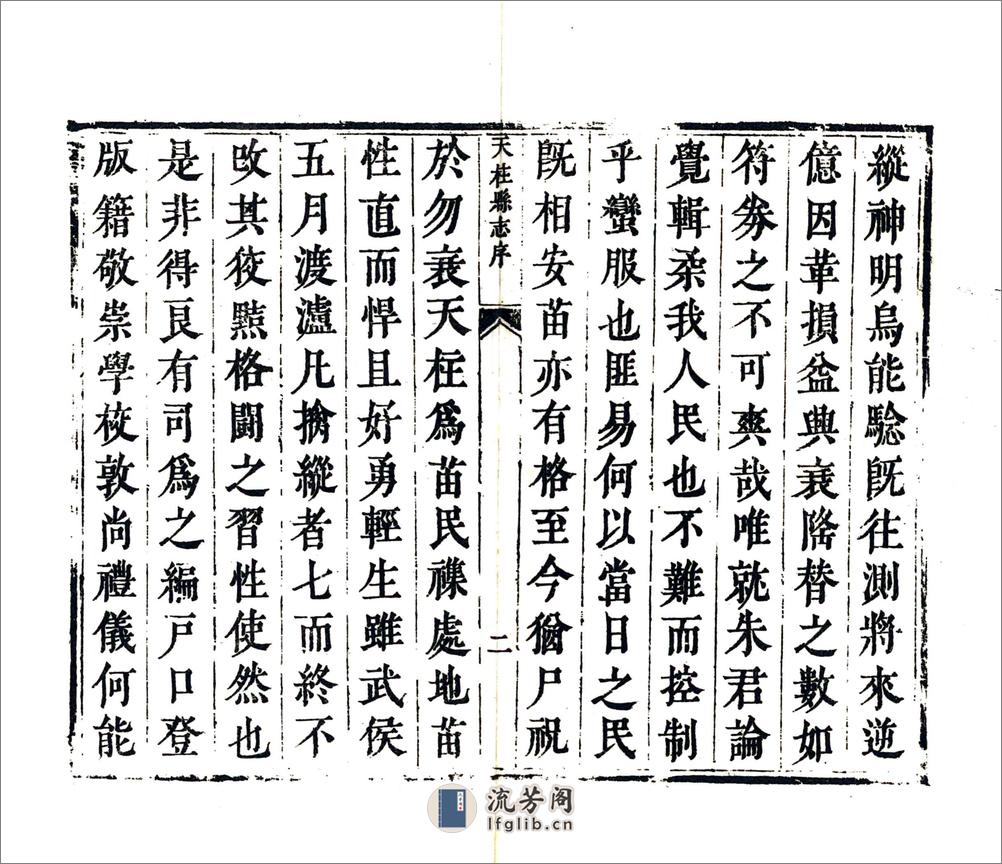 縱神明烏能驗既往測將來逆
億因革損益興衰隆替之數如
符券之不可爽哉唯就朱君論
覺輯柔我人民也不難而控制
乎蠻服也匪易何以當日之民
既相安苗亦有格至今猶尸祝
天柱縣志序
二
於勿衰天柱爲苗民襍處地苗
性直而悍且好勇輕生雖武侯
五月渡瀘凡擒縱者七而終不
改其狡黠格鬪之習性使然也
是非得良有司爲之編戸口登
版籍敬崇學校敦尚禮儀何能
流芳阁
lfglib.cn